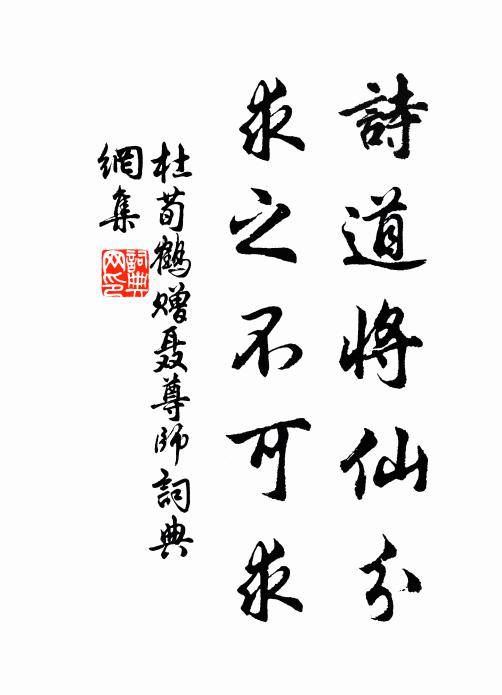 詩道將仙分
求之不可求
杜荀鶴贈聂尊師詞典
網集
詞典
网印